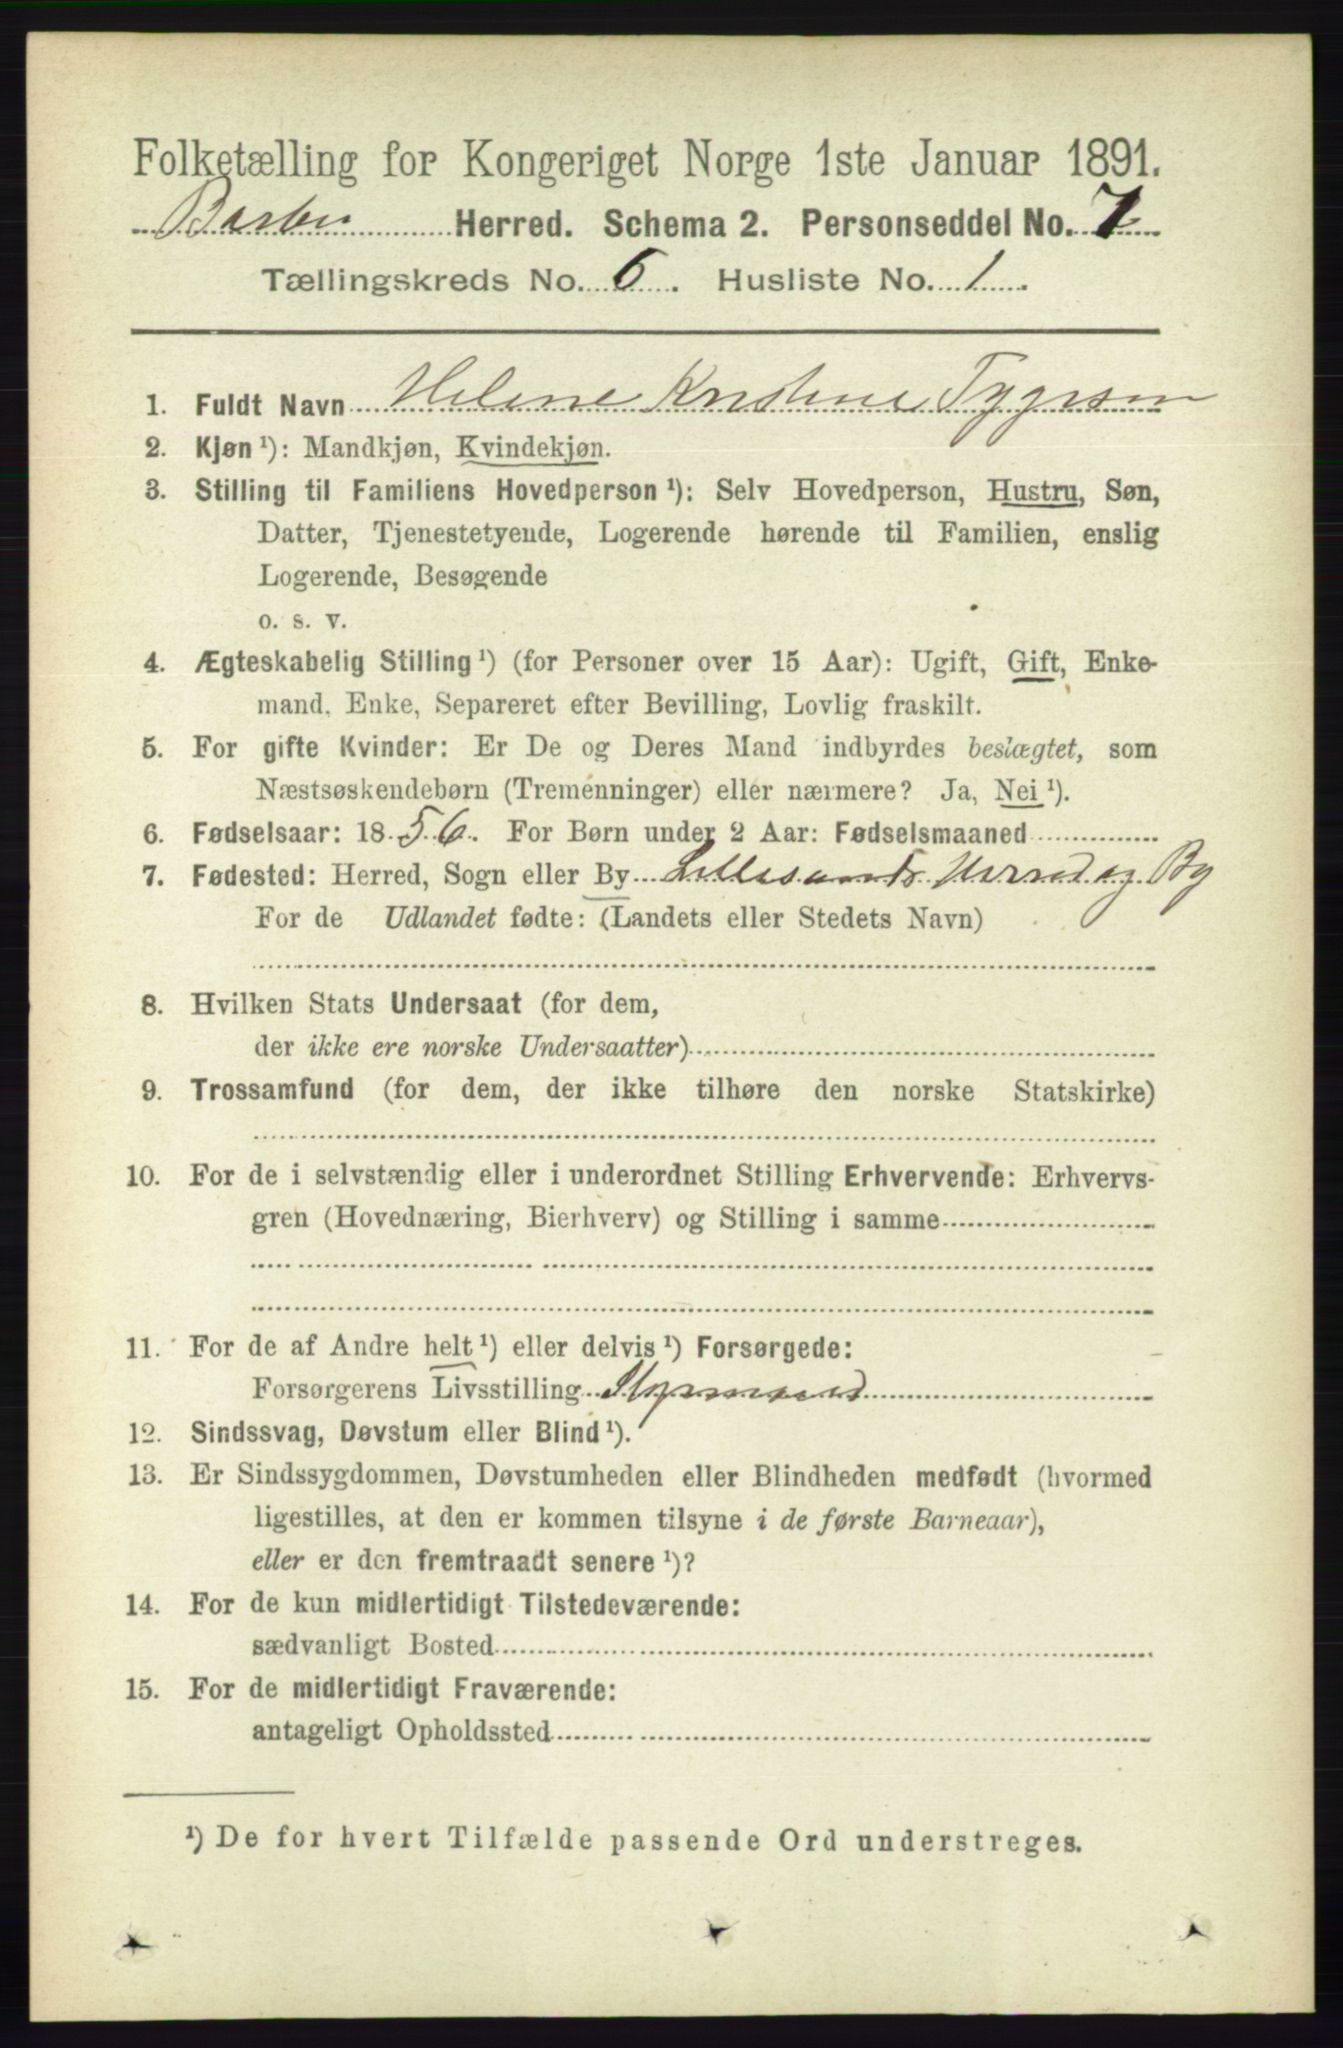 Folketælling for Kongeriget Norge 1ste Januar 1891.
Barbu Herred. Schema 2. Personseddel No. 7
Tællingskreds No. 6. Husliste No. 1.
1. Fuldt Navn Helene Kristine Tygesen
2. Kjøn¹): Mandkjøn, Kvindekjøn.
3. Stilling til Familiens Hovedperson¹): Selv Hovedperson, Hustru, Søn,
Datter, Tjenestetyende, Logerende hørende til Familien, enslig
Logerende, Besøgende
o. s. v.
4. Ægteskabelig Stilling¹) (for Personer over 15 Aar): Ugift, Gift, Enke-
mand, Enke, Separeret efter Bevilling, Lovlig fraskilt.
5. For gifte Kvinder: Er De og Deres Mand indbyrdes beslægtet, som
Næstsøskendebørn (Tremenninger) eller nærmere? Ja, Nei¹).
6. Fødselsaar: 1856. For Børn under 2 Aar: Fødselsmaaned
7. Fødested: Herred, Sogn eller By Lillesands Herred og By
For de Udlandet fødte: (Landets eller Stedets Navn)
8. Hvilken Stats Undersaat (for dem,
der ikke ere norske Undersaatter)
9. Trossamfund (for dem, der ikke tilhøre den norske Statskirke)
10. For de i selvstændig eller i underordnet Stilling Erhvervende: Erhvervs-
gren (Hovednæring, Bierhverv) og Stilling i samme
11. For de af Andre helt¹) eller delvis¹) Forsørgede:
Forsørgerens Livsstilling Styrmand
12. Sindssvag, Døvstum eller Blind¹).
13. Er Sindssygdommen, Døvstumheden eller Blindheden medfødt (hvormed
ligestilles, at den er kommen tilsyne i de første Barneaar),
eller er den fremtraadt senere¹)?
14. For de kun midlertidigt Tilstedeværende:
sædvanligt Bosted
15. For de midlertidigt Fraværende:
antageligt Opholdssted
¹) De for hvert Tilfælde passende Ord understreges.